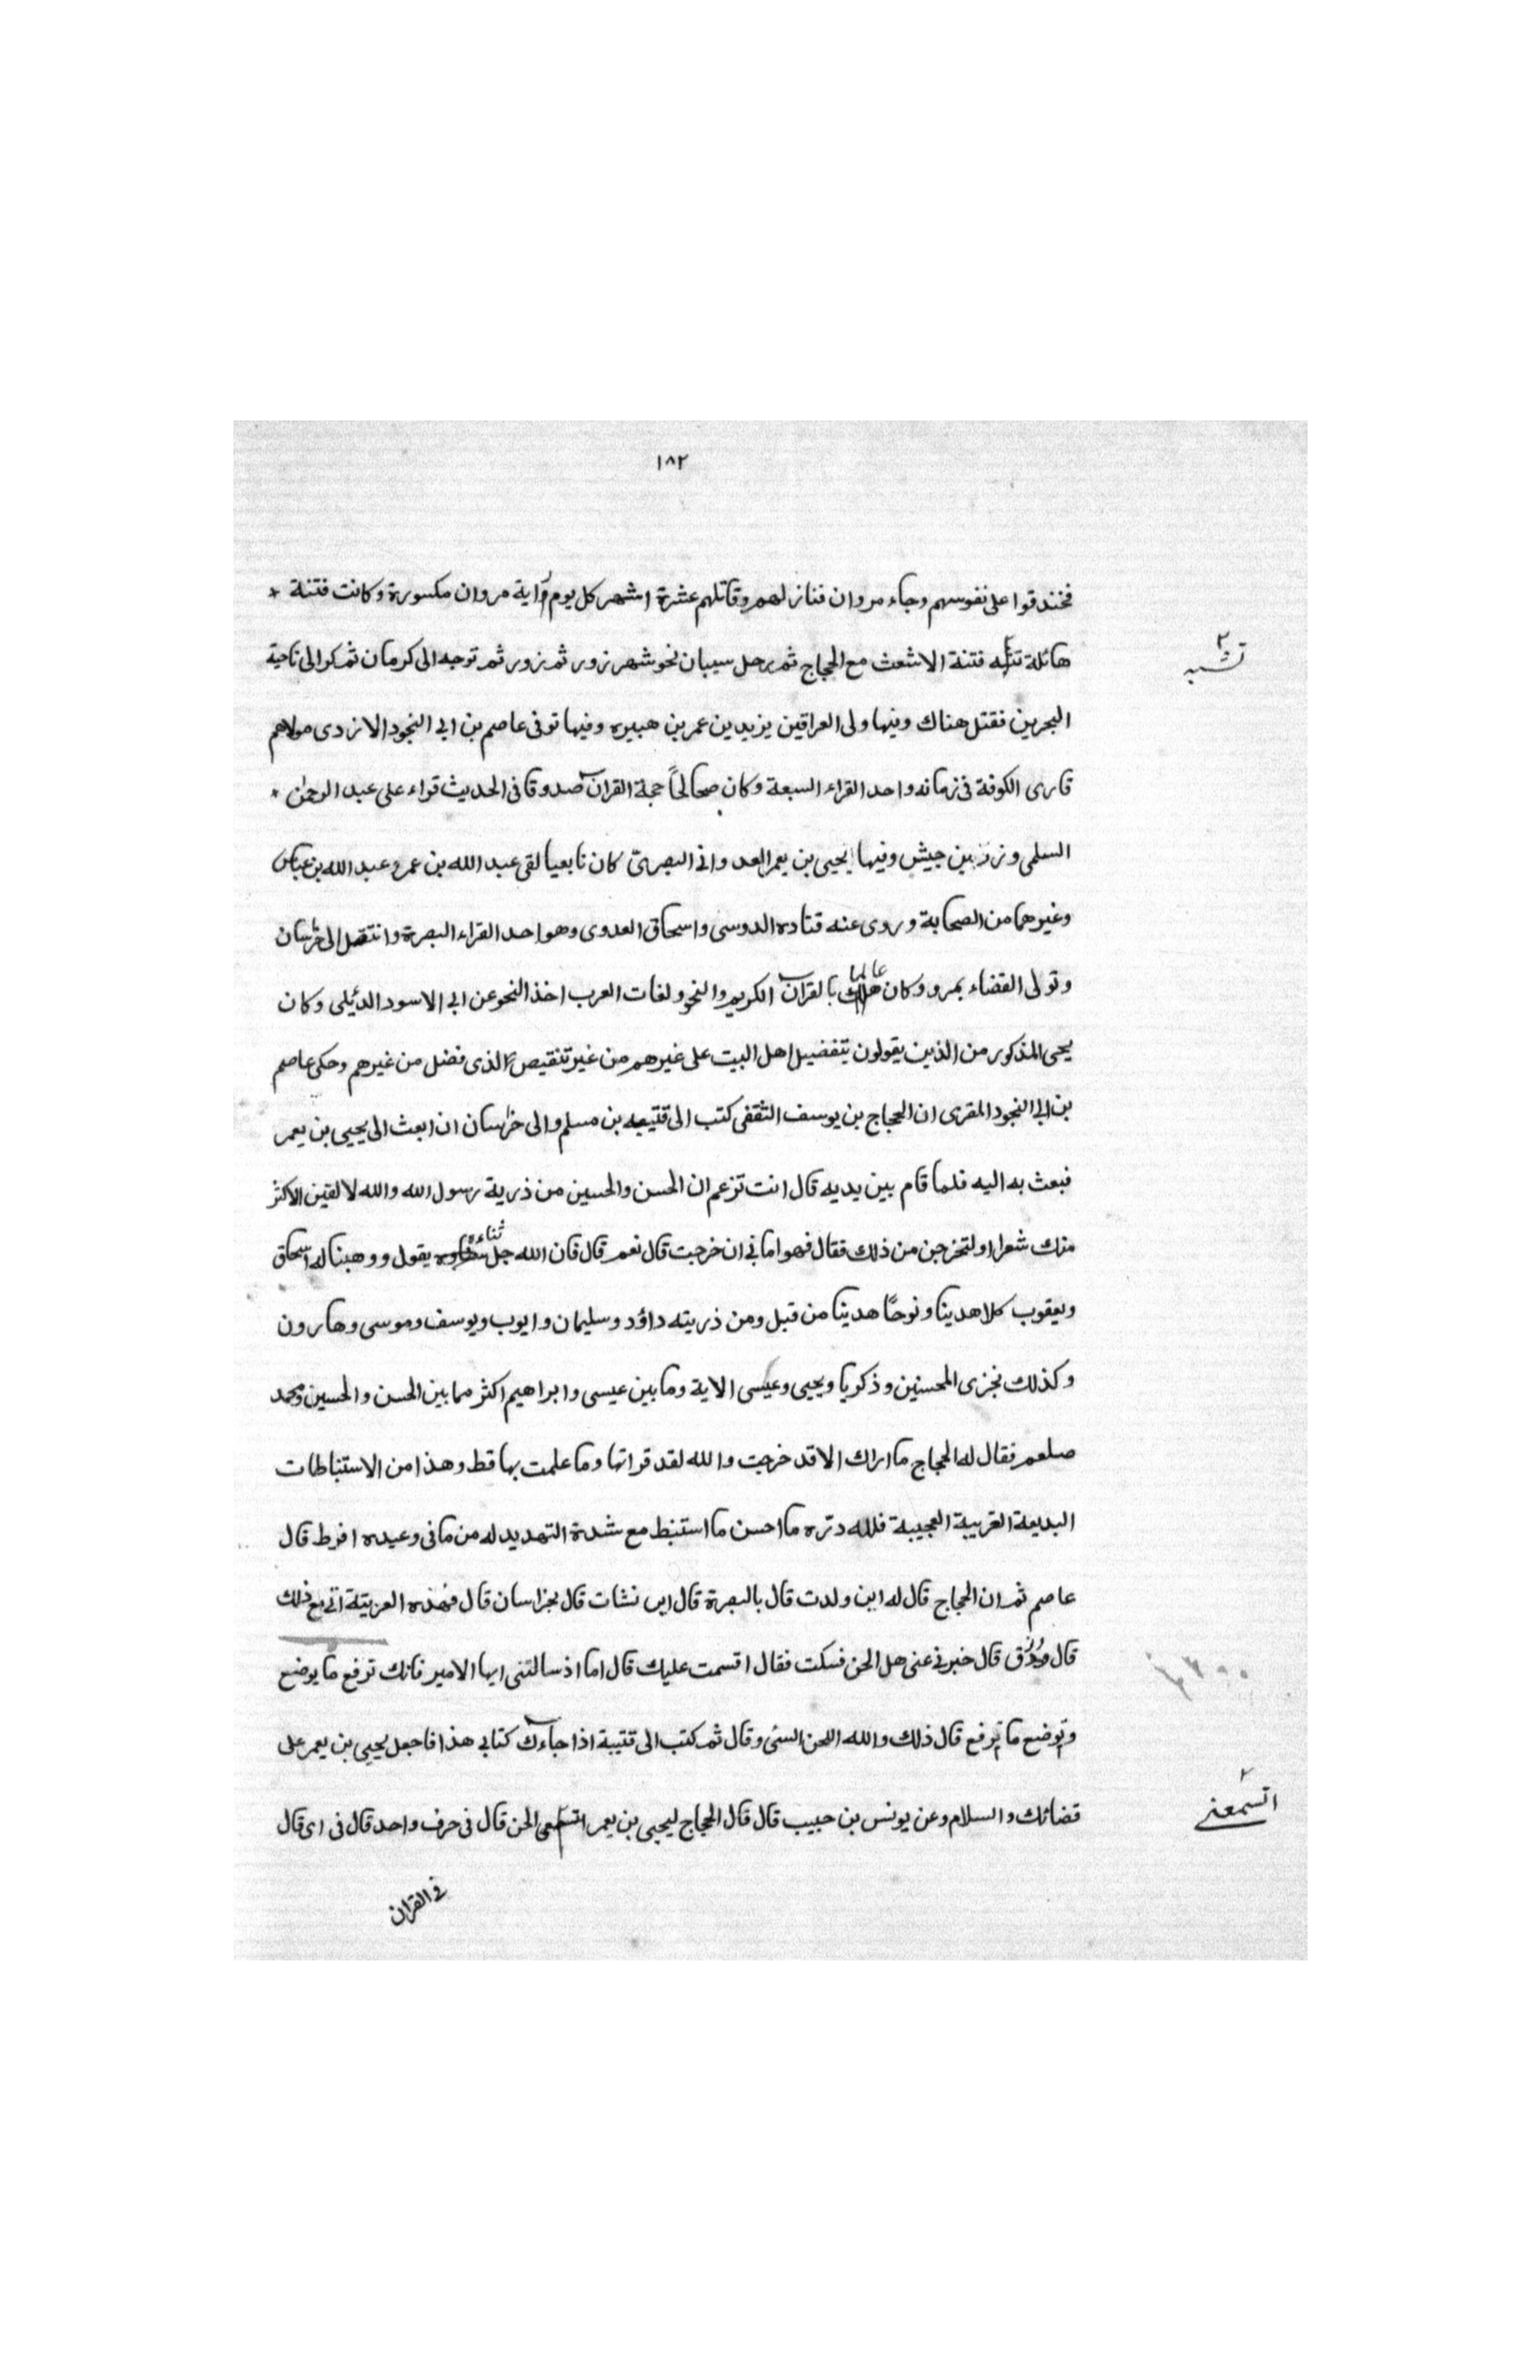 ١٨٢
فخندقوا على نفوسهم وجاء مروان فنازلهم وقاتلهم عشرة اشهر كل يوم راية مروان مكسورة وكانت فتنة *
هائلة تشبه فتنة الاشعث مع الحجاج ثم رحل سيبان نحو شهرزور ثم زور ثم توجه الى كرمان ثم كر الى ناحية
تشبه
البحرين فقتل هناك وفيها ولى العراقين يزيد بن عمر بن هبيره وفيها توفى عاصم بن ابي النجود الازدى مولاهم
قارى الكوفة فى زمانه واحد القراء السبعة وكان صحالحاً حجة القرآن صدوقا فى الحديث قراء على عبد الرحمٰن *
السلمى وزر بن جيش وفيها يحيى بن يعمر العدوانى البصرىّ كان تابعيا لقى عبد الله بن عمر وعبد الله بن عباس
وغيرهما من الصحابة وروى عنه قتاده الدوسى واسحاق العدوى وهو احد القراء البصرة وانتقل الى خراسان
وتولى القضاء بمرو وكان عالما بالقرآن الكريم والنحو ولغات العرب اخذ النحو عن ابي الاسود الدئيلى وكان
يحيى المذكور من الذين يقولون بتفضيل اهل البيت على غيرهم من غير تنقيص الذى فضل من غيرهم وحكى عاصم
بن ابي النجود المقرى ان الحجاج بن يوسف الثقفى كتب الى قتيبه بن مسلم والى خراسان ان ابعث الى يحيى بن يعمر
فبعث به اليه فلما قام بين يديه قال انت تزعم ان الحسن والحسين من ذرية رسول الله والله لالقين الاكثر
منك شعرا او لتخرجن من ذلك فقال فهو امانى ان خرجت قال نعم قال فان الله جل ثناءه يقول ووهبنا له اسحاق
ويعقوب كلا هدينا ونوحًا هدينا من قبل ومن ذريته داؤد وسليمان وايوب ويوسف وموسى وهارون
وكذلك نجزى المحسنين وذكريا ويحيى وعيسى الاية وما بين عيسى وابراهيم اكثر مما بين الحسن والحسين ومحمد
صلعم فقال له الحجاج ما اراك الا قد خرجت والله لقد قراتها وما علمت بها قط وهذا من الاستنباطات
البديعة الغريبة العجيبة فلله درّه ما احسن ما استنبط مع شدة التهديد له من ما فى وعيده افرط قال
عاصم ثم ان الحجاج قال له اين ولدت قال بالبصرة قال اين نشات قال بخراسان قال فهذه العربيتة اتى مع ذلك
قال رزق قال خبرنى عنى هل الحن فسكت فقال اقسمت عليك قال اما اذ سالتنى ايها الامير فانك ترفع ما يوضع
وتوضع ما يرفع قال ذلك والله اللحن السئ وقال ثم كتب الى قتيبة اذا جاءك كتابي هذا فاجعل يحيى بن يعمر على
قضائك والسلام وعن يونس بن حبيب قال قال الحجاج ليحيى بن يعمر الحن قال فى حرف واحد قال فى اى قال
اتسمعنى
فى القران